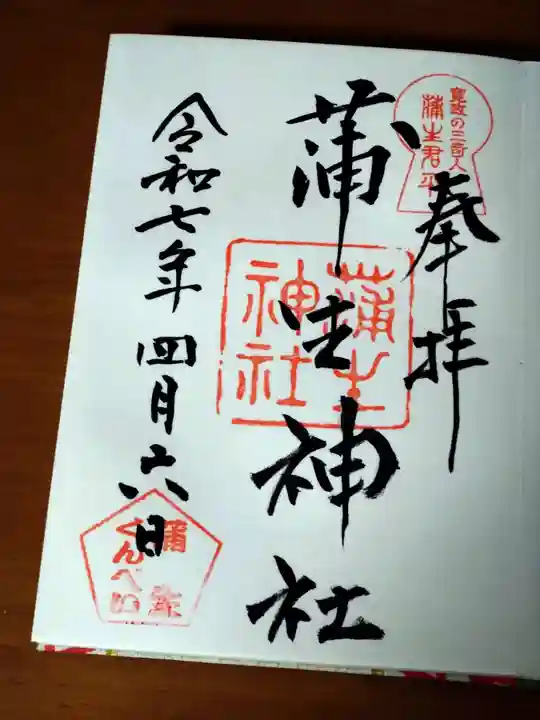 寛政の三奇人
蒲生君平
奉拝
蒲生神社
蒲生
神社
令和七年四月六日
蒲生
くんぺい